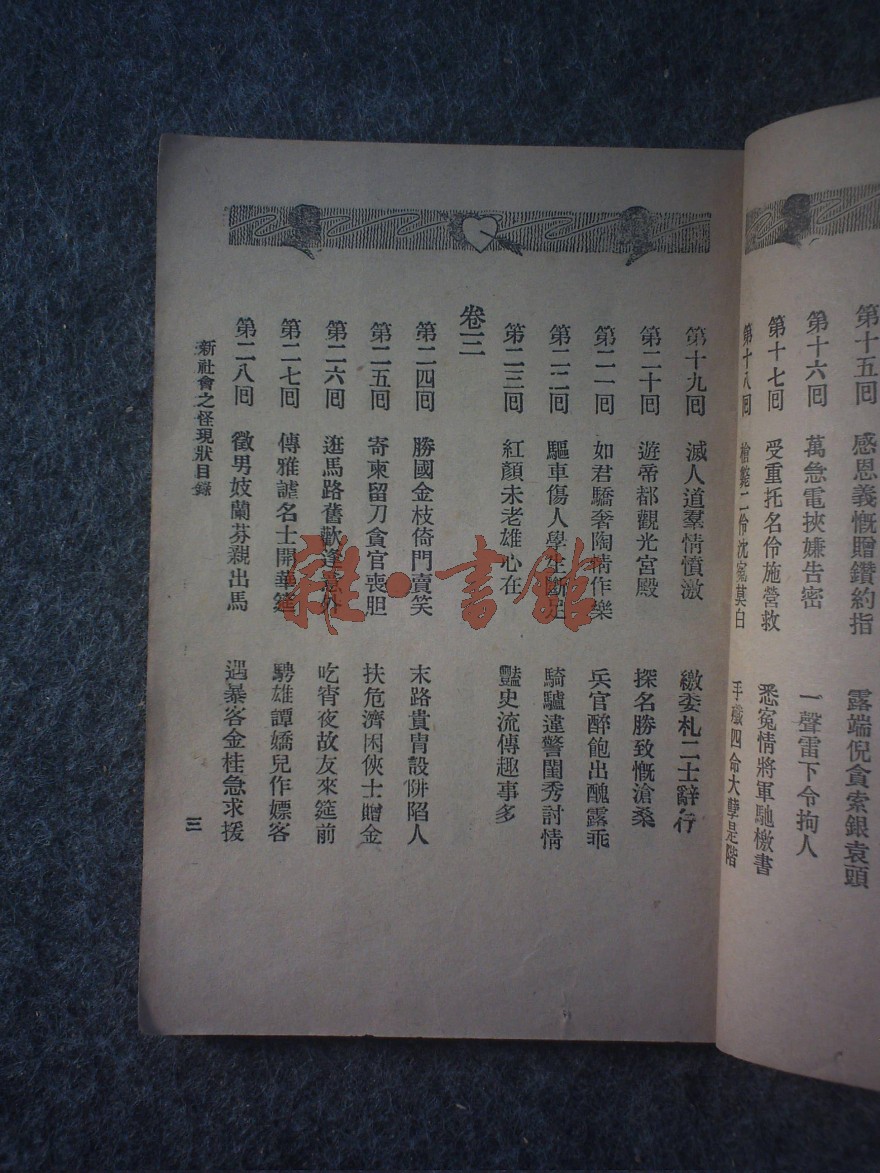 第十五回　感恩義慨贈鑽約指　露端倪貪索銀袁頭
第十六回　萬急電挾嫌告密　一聲雷下令拘人
第十七回　受重托名伶施營救　悉冤情將軍馳檄書
第十八回　槍斃二伶沈冤莫白　手戕四命大孽是階
第十九回　滅人道羣情憤激　繳委札二士辭行
第二十回　遊帝都觀光宮殿　探名勝致慨滄桑
第二一回　如君驕奢陶情作樂　兵官醉飽出醜露乖
第二二回　驅車傷人學生斷足　騎驢違警閨秀討情
第二三回　紅顏未老雄心在　豔史流傳趣事多
卷三
第二四回　勝國金枝倚門賣笑　末路貴胄設阱陷人
第二五回　寄柬留刀貪官喪胆　扶危濟困俠士贈金
第二六回　逛馬路舊歡逢意外　吃宵夜故友來筵前
第二七回　傳雅謔名士開華筵　騁雄譚嬌兒作嫖客
第二八回　徵男妓蘭芬親出馬　遇暴客金桂急求援
新社會之怪現狀目錄
三
雜·書館